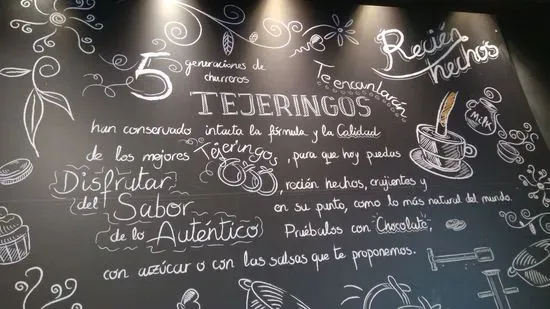 Recién hechos
5 generaciones de churreros
Te encantarán
TEJERINGOS
han conservado intacta la fórmula y la Calidad
de los mejores Tejeringos, para que hoy puedas
Disfrutar del Sabor de lo Auténtico
, recién hechos, crujientes y
en su punto, como lo más natural del mundo.
Pruébalos con Chocolate,
con azúcar o con las salsas que te proponemos.
MILK